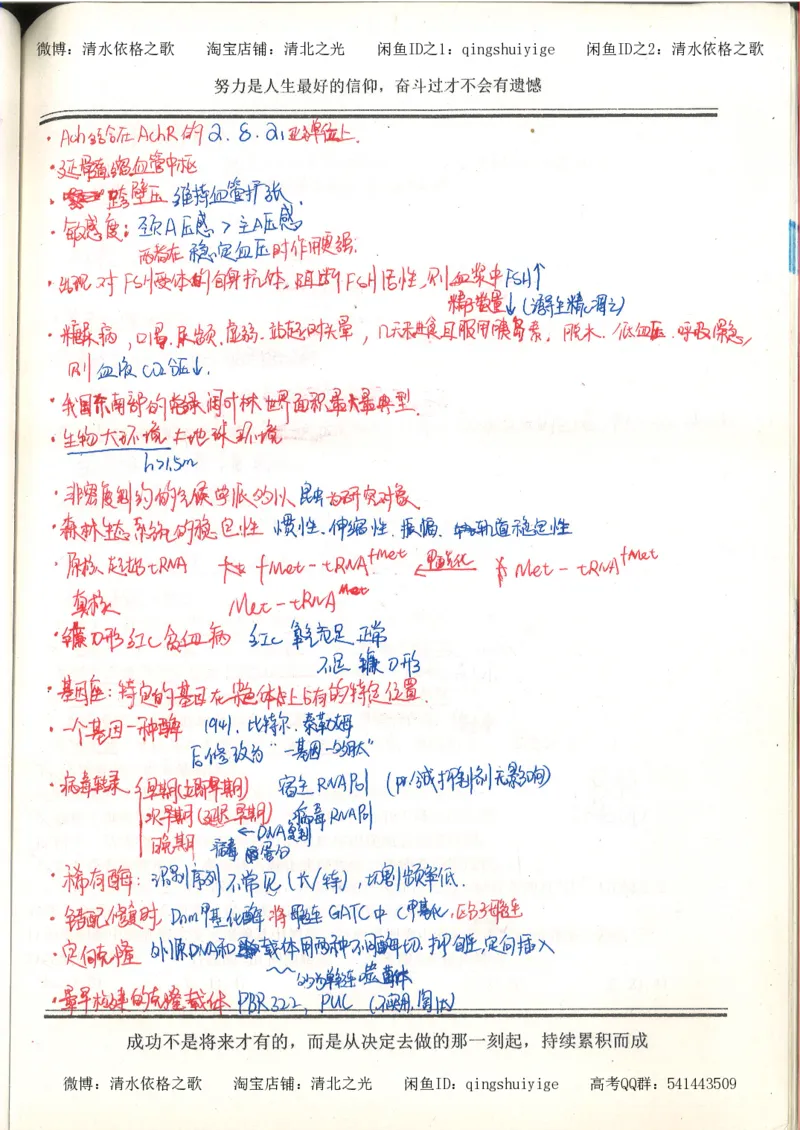 微博：清水依格之歌 淘宝店铺：清北之光 闲鱼ID之1：qingshuiyige 闲鱼ID之2：清水依格之歌
努力是人生最好的信仰，奋斗过才不会有遗憾
· Ach结合在AchR的 亚单位上.
· 延髓缩血管中枢
· 跨壁压 维持血管扩张.
· 敏感度：颈A压感 > 主A压感
两者在 稳定血压时作用更强.
· 出现对FSH受体的自身抗体，阻断FSH活性，则血浆中FSH↑
精子数量↓
· 糖尿病，口渴.尿频.虚弱.站起时头晕，几天未进食且服用胰岛素，脱水.低血压.呼吸 ，
则血液CO2分压↓.
· 我国东南部的常绿阔叶林世界面积最大最典型.
· 生物大环境 ≠地球环境
h>1.5m
· 非密度制约的气候学派的以 昆虫为研究对象
· 森林生态系统的稳定性 惯性.伸缩性.振幅. 轨道稳定性
· 原核 起始tRNA fMet-tRNA fMet ← 甲酰化 Met-tRNA fMet
真核 Met-tRNA Met
· 镰刀形红C贫血病 红C 氧充足 正常
不足 镰刀形
· 基因座：特定的基因在染色体上占有的特定位置.
· 一个基因一种酶 1941. 比特尔.泰勒姆
后修改为“一基因一多肽”
· 病毒转录 早期(立即早期) 宿主RNA Pol (pr合成抑制剂无影响)
次早期(延迟早期) 病毒RNA Pol
晚期 ←DNA复制
病毒 蛋白
· 稀有酶：识别序列不常见(长/特)，切割频率低.
· 错配修复时 Dam甲基化酶 将 GATC中 甲基化，
· 定向克隆 外源DNA和载体用两种不同酶切.抑自连，定向插入
· 最早构建的克隆载体 PBR322, PUC
成功不是将来才有的，而是从决定去做的那一刻起，持续累积而成
微博：清水依格之歌 淘宝店铺：清北之光 闲鱼ID：qingshuiyige 高考QQ群：541443509